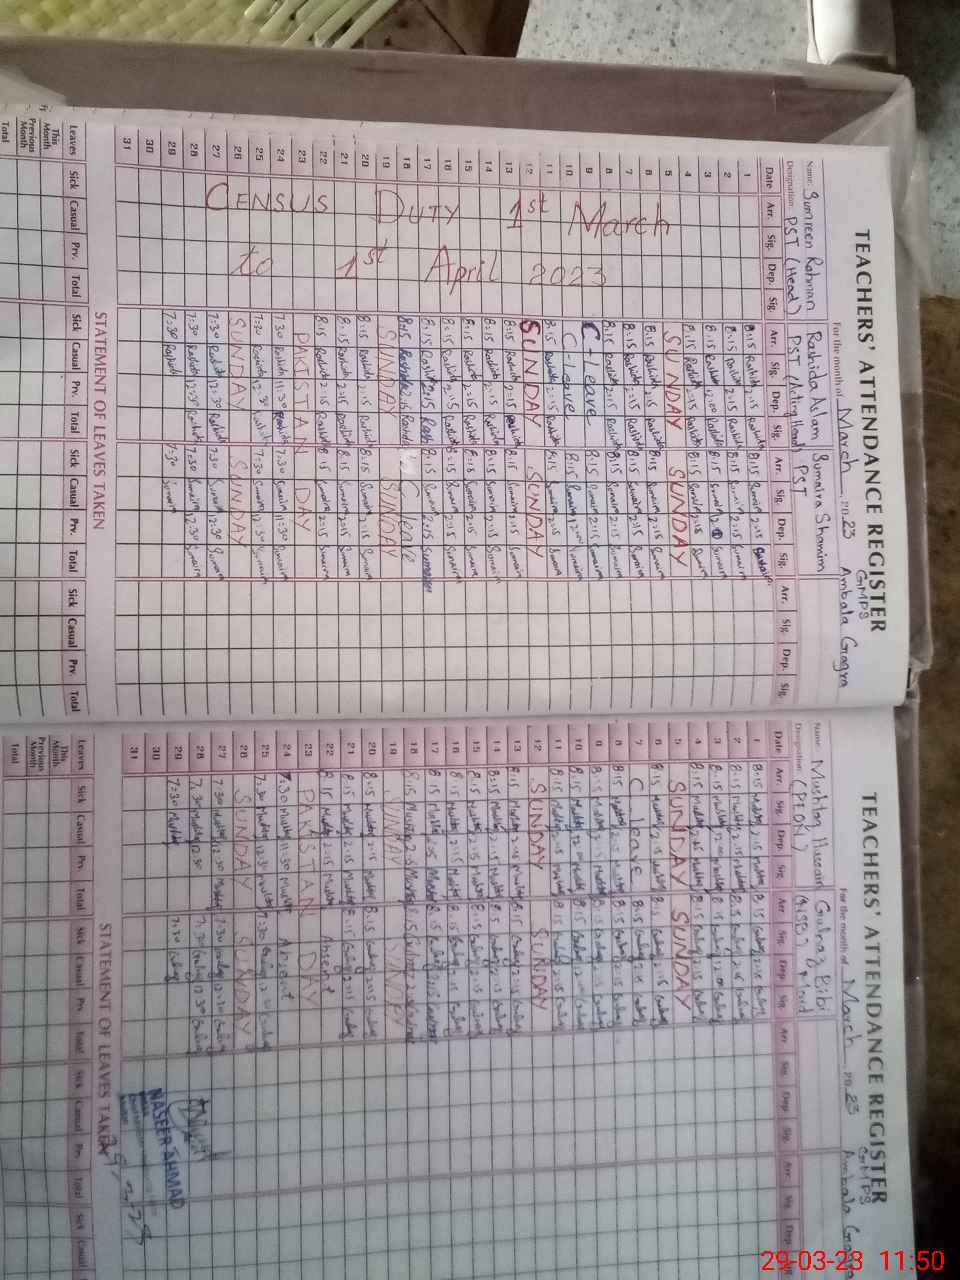 TEACHERS' ATTENDANCE REGISTER
GMPS
For the month of March 2023 Ambala Gagra
Name: Sumreen Rahman Rashida Aslam Sumaira Shamim
Designation: PST (Head) PST (Acting Head) PST
Date Arr. Sig. Dep. Sig. Arr. Sig. Dep. Sig. Arr. Sig. Dep. Sig. Arr. Sig. Dep. Sig.
CENSUS DUTY 1st March
to 1st April 2023
1 8:15 Rashida 2:15 Rashida 8:15 Sumaira 2:15
2 8:15 Rashida 2:15 Rashida 8:15 Sumaira 2:15 Sumaira
3 8:15 Rashida 12:00 Rashida 8:15 Sumaira
4 8:15 Rashida 2:15 Rashida 8:15 Sumaira 2:15 Sumaira
5 SUNDAY SUNDAY
6 8:15 Rashida 2:15 Rashida 8:15 Sumaira 2:15 Sumaira
7 8:15 Rashida 2:15 Rashida 8:15 Sumaira 2:15 Sumaira
8 8:15 Rashida 2:15 Rashida 8:15 Sumaira 2:15 Sumaira
9 C-Leave 8:15 Sumaira 2:15 Sumaira
10 C-Leave 8:15 Sumaira 12:00 Sumaira
11 8:15 Rashida 2:15 Rashida 8:15 Sumaira 2:15 Sumaira
12 SUNDAY SUNDAY
13 8:15 Rashida 2:15 Rashida 8:15 Sumaira 2:15 Sumaira
14 8:15 Rashida 2:15 Rashida 8:15 Sumaira 2:15 Sumaira
15 8:15 Rashida 2:15 Rashida 8:15 Sumaira 2:15 Sumaira
16 8:15 Rashida 2:15 Rashida 8:15 Sumaira 2:15 Sumaira
17 8:15 Rashida 2:15 8:15 Sumaira 2:15 Sumaira
18 8:15 Rashida 2:15 Rashida C leave
19 SUNDAY SUNDAY
20 8:15 Rashida 2:15 Rashida 8:15 Sumaira 2:15 Sumaira
21 8:15 Rashida 2:15 Rashida 8:15 Sumaira 2:15 Sumaira
22 8:15 Rashida 2:15 Rashida 8:15 Sumaira 2:15 Sumaira
23 PAKISTAN DAY
24 7:30 Rashida 11:30 Rashida 7:30 Sumaira 11:30 Sumaira
25 7:30 Rashida 12:30 Rashida 7:30 Sumaira 12:30 Sumaira
26 SUNDAY SUNDAY
27 7:30 Rashida 12:30 Rashida 7:30 Sumaira 12:30 Sumaira
28 7:30 Rashida 12:30 Rashida 7:30 Sumaira 12:30 Sumaira
29 7:30 Rashida 7:30 Sumaira
30
31
STATEMENT OF LEAVES TAKEN
Leaves Sick Casual Prv. Total Sick Casual Prv. Total Sick Casual Prv. Total Sick Casual Prv. Total
This Month
Previous Month
Total
TEACHERS' ATTENDANCE REGISTER
GMPS
For the month of March 2023 Ambala Gagra
Name: Mushtaq Hussain Gulnaz Bibi
Designation: (PEON) Maid
Date Arr. Sig. Dep. Sig. Arr. Sig. Dep. Sig. Arr. Sig. Dep. Sig. Arr. Sig. Dep.
1 8:15 Mushtaq 2:15 Mushtaq 8:15 2:15
2 8:15 Mushtaq 2:15 Mushtaq 8:15 2:15
3 8:15 Mushtaq 12:00 Mushtaq 8:15
4 8:15 Mushtaq 2:15 Mushtaq 8:15 2:15
5 SUNDAY SUNDAY
6 8:15 Mushtaq 2:15 Mushtaq 8:15 2:15
7 C leave 8:15 2:15
8 8:15 Mushtaq 8:15 2:15
9 8:15 Mushtaq 2:15 8:15 2:15
10 8:15 Mushtaq 12:00 8:15
11 8:15 Mushtaq 2:15 Mushtaq 8:15 2:15
12 SUNDAY SUNDAY
13 8:15 Mushtaq 2:15 Mushtaq 8:15 2:15
14 8:15 Mushtaq 2:15 Mushtaq 8:15 2:15
15 8:15 Mushtaq 2:15 Mushtaq 8:15 2:15
16 8:15 Mushtaq 2:15 Mushtaq 8:15 2:15
17 8:15 Mushtaq 2:15 Mushtaq 8:15 2:15
18 8:15 Mushtaq 2:15 Mushtaq 8:15 2:15
19 SUNDAY SUNDAY
20 8:15 Mushtaq 2:15 Mushtaq 8:15 2:15
21 8:15 Mushtaq 2:15 Mushtaq 8:15 2:15
22 8:15 Mushtaq 2:15 Mushtaq Absent
23 PAKISTAN DAY
24 7:30 Mushtaq 11:30 Mushtaq Absent
25 7:30 Mushtaq 12:30 Mushtaq 7:30
26 SUNDAY SUNDAY
27 7:30 Mushtaq 12:30 Mushtaq 7:30 12:30
28 7:30 Mushtaq 12:30 7:30 12:30
29 7:30 Mushtaq 7:30
30
31
NASEER AHMAD
STATEMENT OF LEAVES TAKEN
Leaves Sick Casual Prv. Total Sick Casual Prv. Total Sick Casual Prv. Total Sick Casual
This Month
Previous Month
Total
29-03-23 11:50